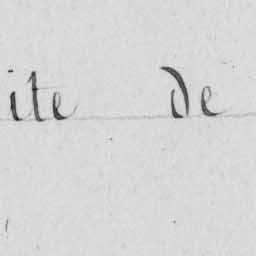 ite de